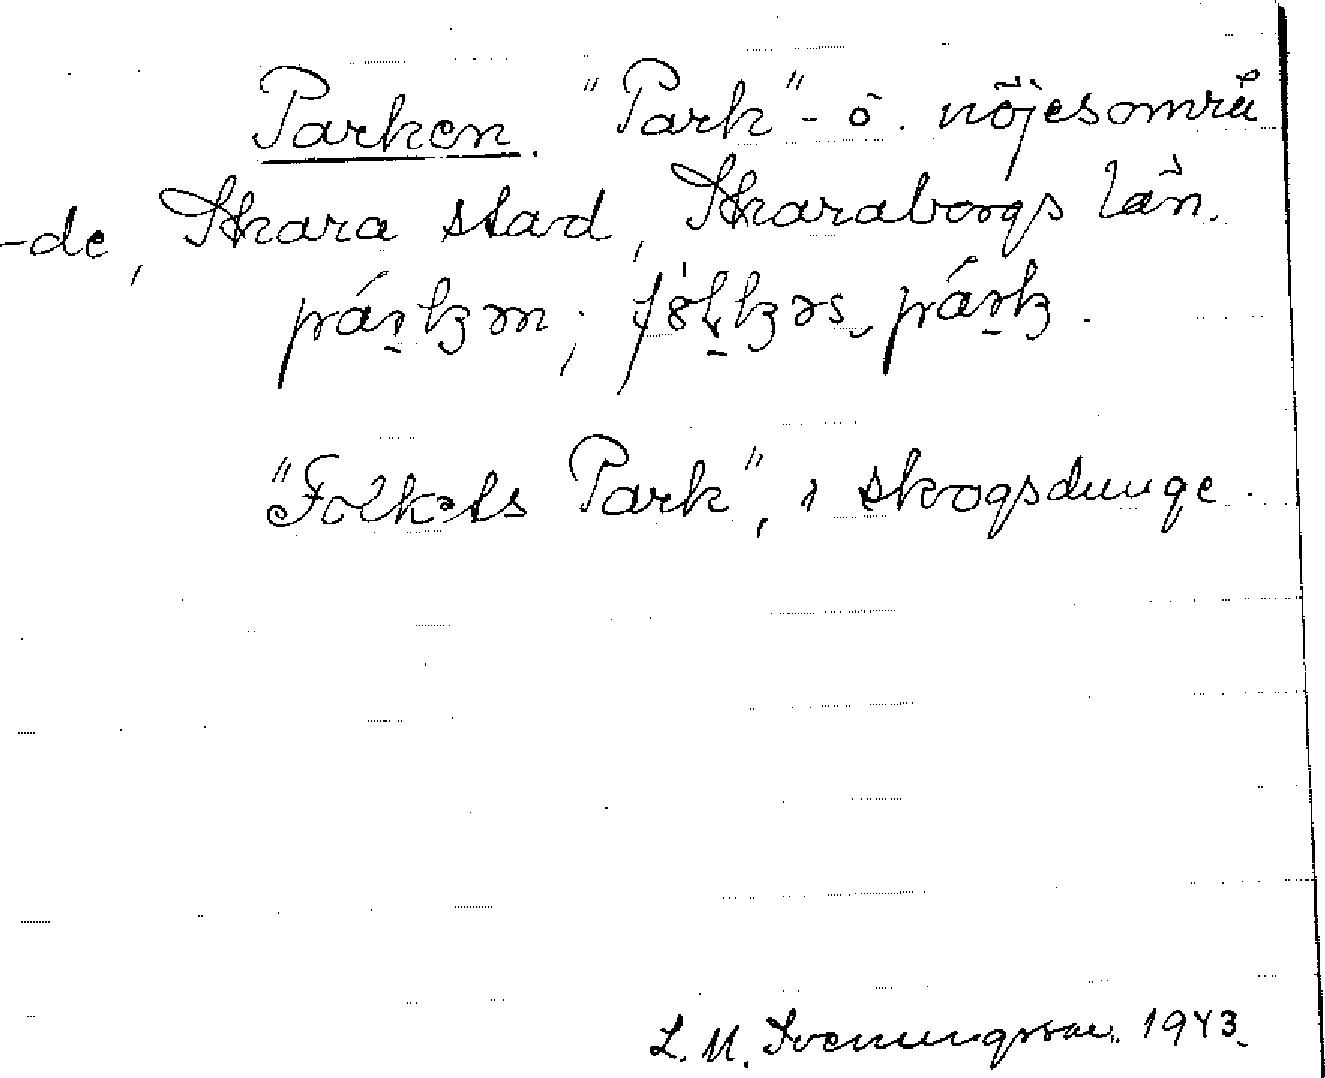 Parken. "Park"- o. nöjesområ
-de, Skara stad, Skaraborgs län.
"Folkets Park", i skogsdunge.
L. M. Svenungsson. 1943.